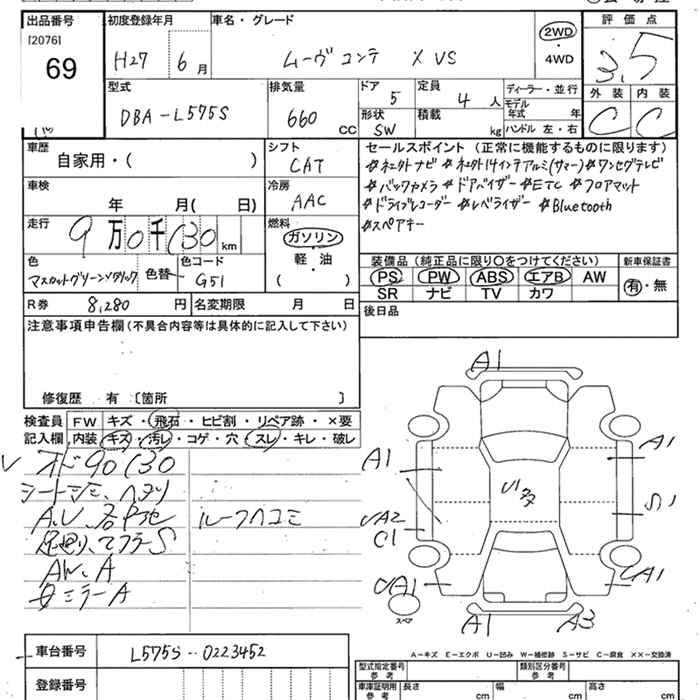 出品番号 初度登録年月 車名・グレード 評価点
[2076]
69 H27 6月 ムーヴコンテ X VS 2WD・4WD 3.5
型式 排気量 ドア 定員 ディーラー・並行 外装 内装
DBA-L575S 660 CC 5 4人 モデル年式 年 C C
形状 積載 ハンドル 左・右
SW kg
車歴 シフト セールスポイント(正常に機能するものに限ります)
自家用・( ) CAT #ネオクトナビ #ネオクト14インチアルミ(サマー) #ワンセグテレビ
車検 冷房 #バックカメラ #ドアバイザー #ETC #フロアマット
年 月( 日) AAC #ドライブレコーダー #レベライザー #Bluetooth
走行 燃料 #スペアキー
9万0千130km ガソリン
軽・油
( )
色 色替 色コード 装備品(純正品に限り○をつけてください) 新車保証書
マスカットグリーンメタリック G51 PS PW ABS エアB AW 有・無
SR ナビ TV カワ
R券 8,280円 名変期限 月 日 後日品
注意事項申告欄(不具合内容等は具体的に記入して下さい)
修復歴 有〔箇所 〕
検査員記入欄 FW キズ・飛石・ヒビ割・リペア跡・×要
内装 キズ・汚レ・コゲ・穴・スレ・キレ・破レ
オド90130
シートシミ、ヘタリ
A.U
ルーフヘコミ
足廻り、マフラーS
AW.A
ミラーA
A1
A1 A1
UA2 S1
C1
UA1 UA1
スペア
A1 A3
車台番号 L575S-0223452
A-キズ E-エクボ U-凹み W-補修跡 S-サビ C-腐食 ××-交換済
登録番号 型式指定番号 参考 類別区分番号 参考
車庫証明用 参考 長さ cm 幅 cm 高さ cm